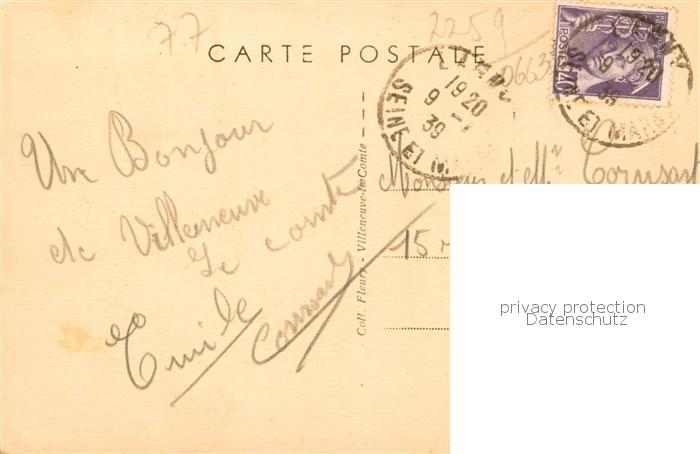 77
2259
CARTE POSTALE
0663
POSTES
19 20
9 - 1
39
SEINE ET
19 20
39
SEINE ET MARNE
Un Bonjour
de Villeneuve
le comte
Emile
Monsieur et Mr
15
Coll. Fleury - Villeneuve-le-Comte
privacy protection
Datenschutz